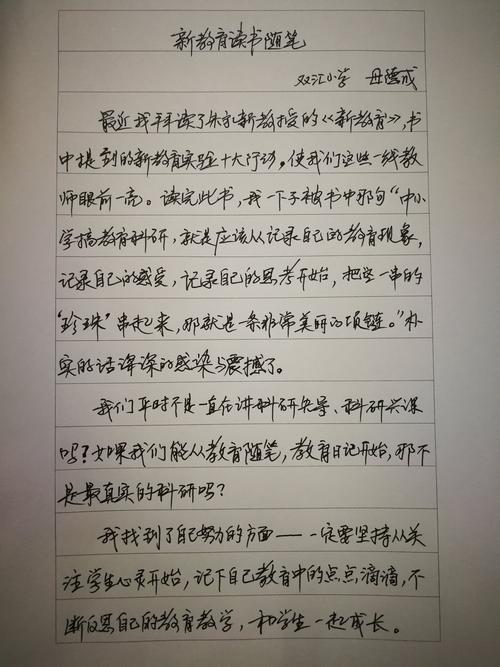 新教育读书随笔
双江小学 毋德成
最近我拜读了朱永新教授的《新教育》,书
中提到的新教育实验十大行动,使我们这些一线教
师眼前一亮。读完此书,我一下子被书中那句“中小
学搞教育科研,就是应该从记录自己的教育现象,
记录自己的感受,记录自己的思考开始,把这一串的
“珍珠”串起来,那就是一条非常美丽的项链。”朴
实的话深深的感染与震撼了。
我们平时不是一直在讲科研先导、科研兴课
吗?如果我们能从教育随笔,教育日记开始,那不
是最真实的科研吗?
我找到了自己努力的方面——一定要坚持从关
注学生心灵开始,记下自己教育中的点点滴滴,不
断反思自己的教育教学,和学生一起成长。